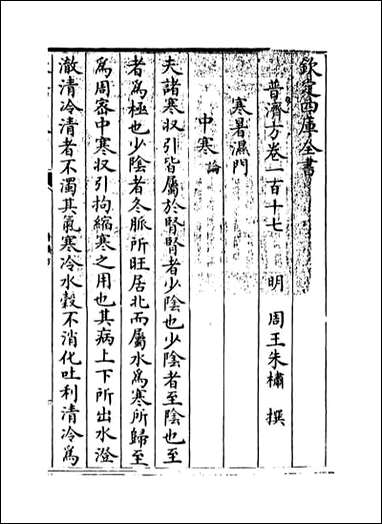 欽定四庫全書
普濟方卷一百十七　明　周王朱橚　撰
寒暑濕門
中寒論
夫諸寒収引皆屬於腎腎者少陰也少陰者至陰也至
者為極也少陰者冬脈所旺居北而屬水為寒所歸至
為周宻中寒収引拘縮寒之用也其病上下所出水澄
澈清冷清者不濁其氣寒冷水穀不消化吐利清冷為